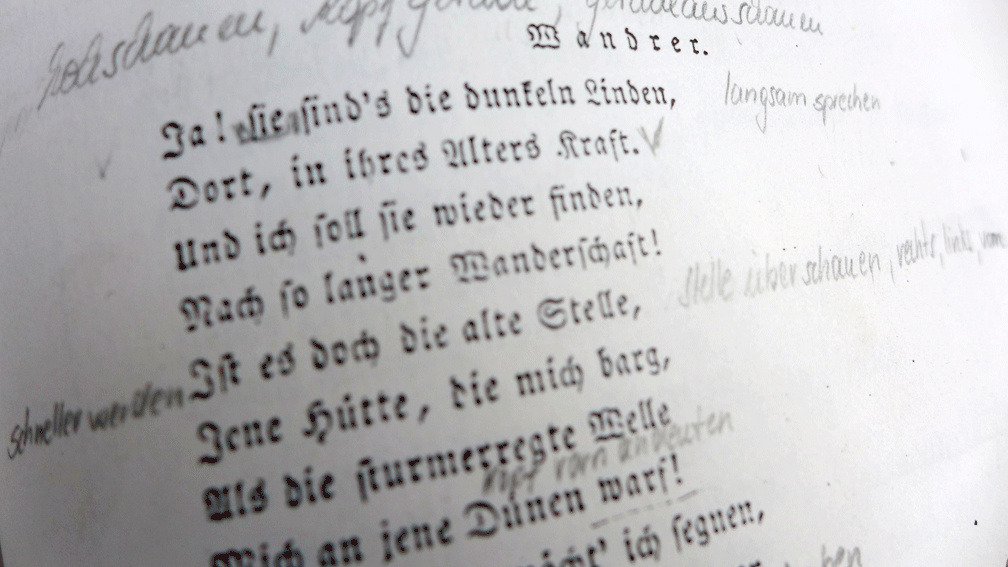 hochschauen, Kopf gerade, geradeaus schauen
Wandrer.
Ja! sie sind's die dunkeln Linden, langsam sprechen
Dort, in ihres Alters Kraft.
Und ich soll sie wieder finden,
Nach so langer Wanderschaft!
Stelle überschauen, rechts, links, vorn
Ist es doch die alte Stelle,
schneller werden
Jene Hütte, die mich barg,
Als die sturmerregte Welle
Kopf vorn andeuten
Mich an jene Dünen warf!
möcht' ich segnen,